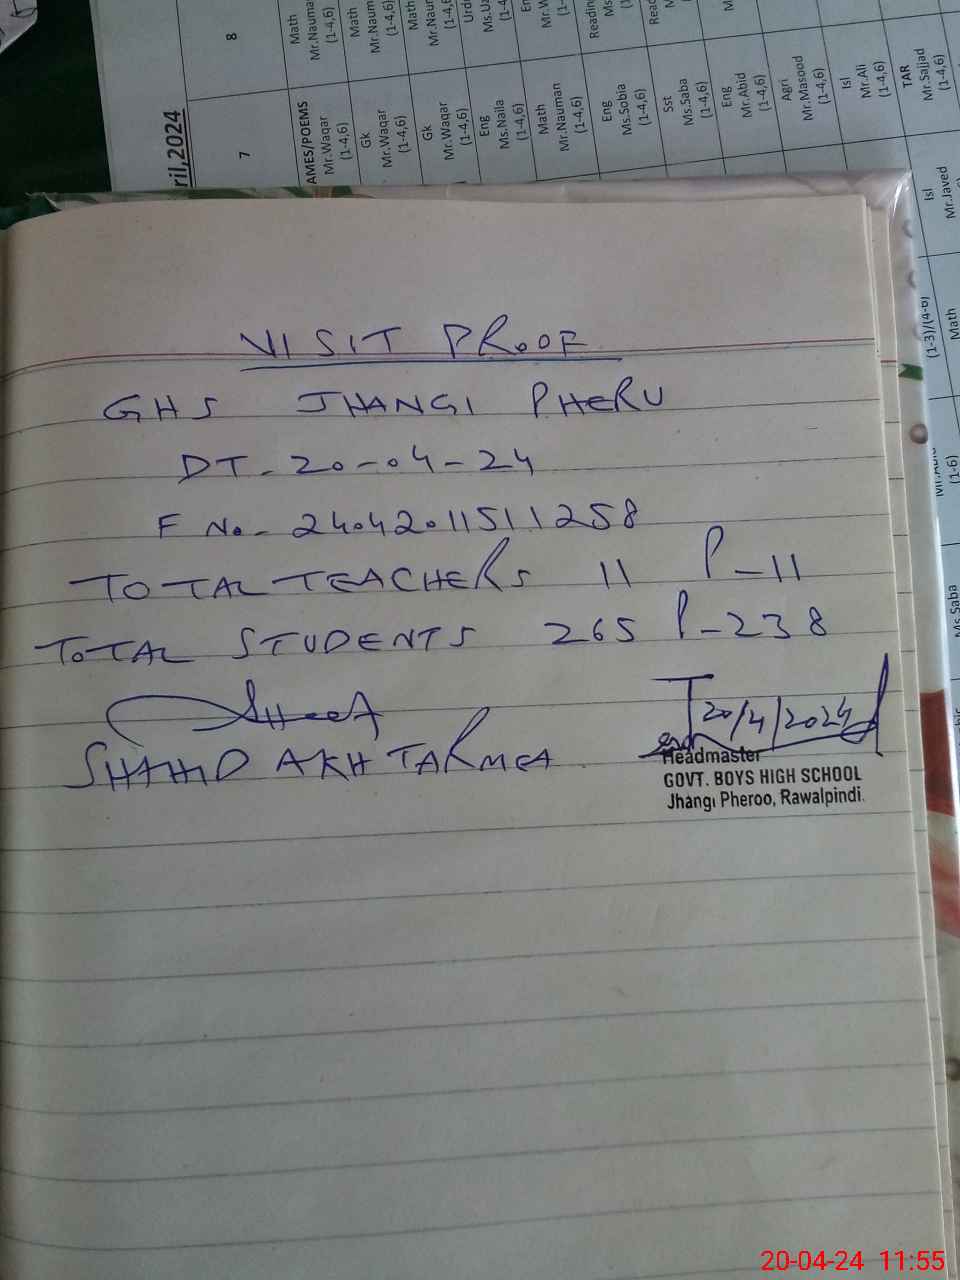 8
Math
Mr.Nauman
(1-4,6)
Math
(1-4,6)
Math
(1-4,6)
ril,2024
7
AMES/POEMS
Mr.Waqar
(1-4,6)
Gk
Mr.Waqar
(1-4,6)
Gk
Mr.Waqar
(1-4,6)
Eng
Ms.Naila
(1-4,6)
Math
Mr.Nauman
(1-4,6)
Eng
Ms.Sobia
(1-4,6)
Sst
Ms.Saba
(1-4,6)
Eng
Mr.Abid
(1-4,6)
Agri
Mr.Masood
(1-4,6)
Isl
Mr.Ali
(1-4,6)
TAR
Mr.Sajjad
(1-4,6)
Reading
Isl
Mr.Javed
(1-3)/(4-6)
Math
(1-6)
Ms Saba
VISIT PROOF
GHS JHANGI PHERU
DT- 20-04-24
F No- 2404201151 1258
TOTAL TEACHERS 11 P-11
TOTAL STUDENTS 265 P-238
SHAHID AKHTAR MEA
20/4/2024
Headmaster
GOVT. BOYS HIGH SCHOOL
Jhangi Pheroo, Rawalpindi.
20-04-24 11:55